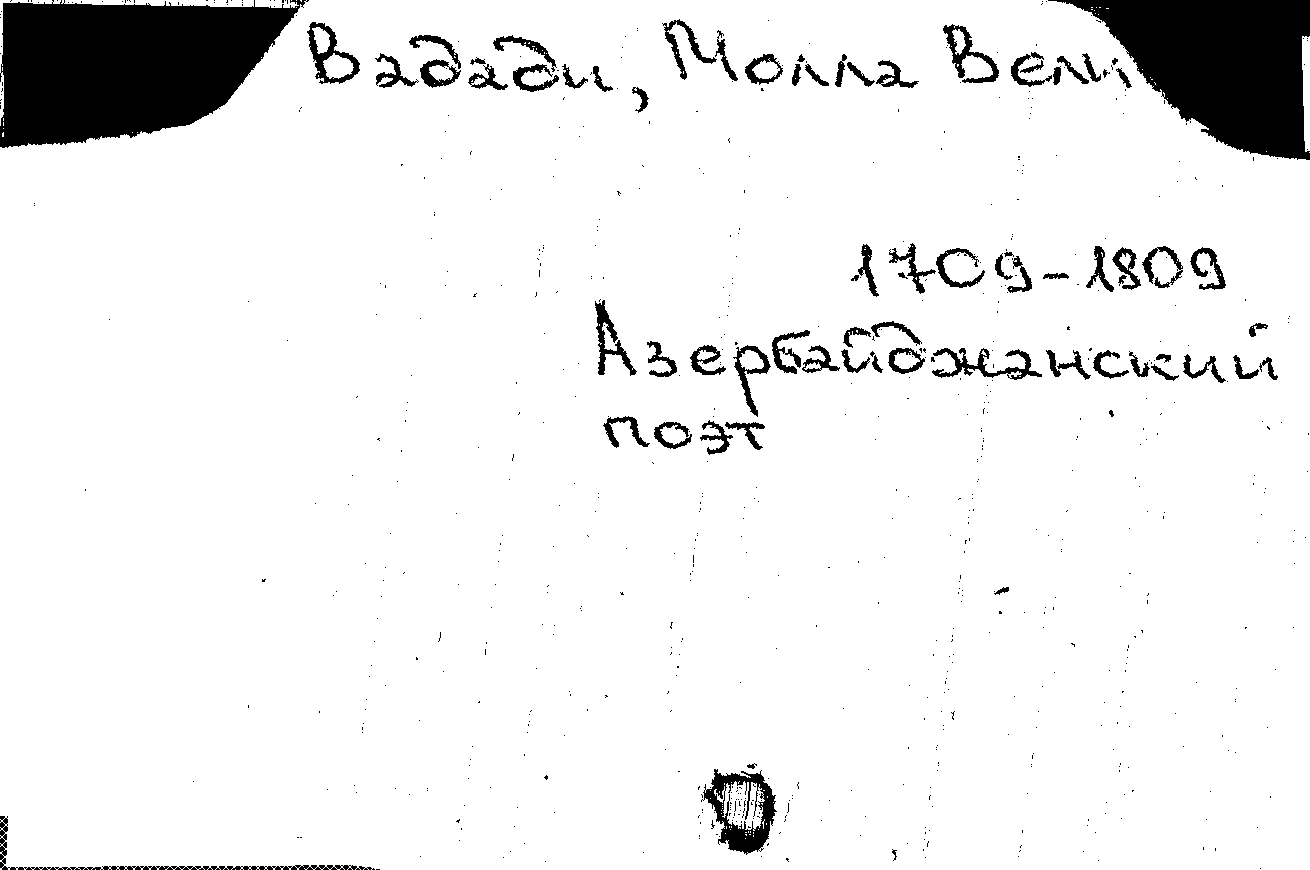 Вадади, Молла Вели
1709-1809
Азербайджанский
поэт